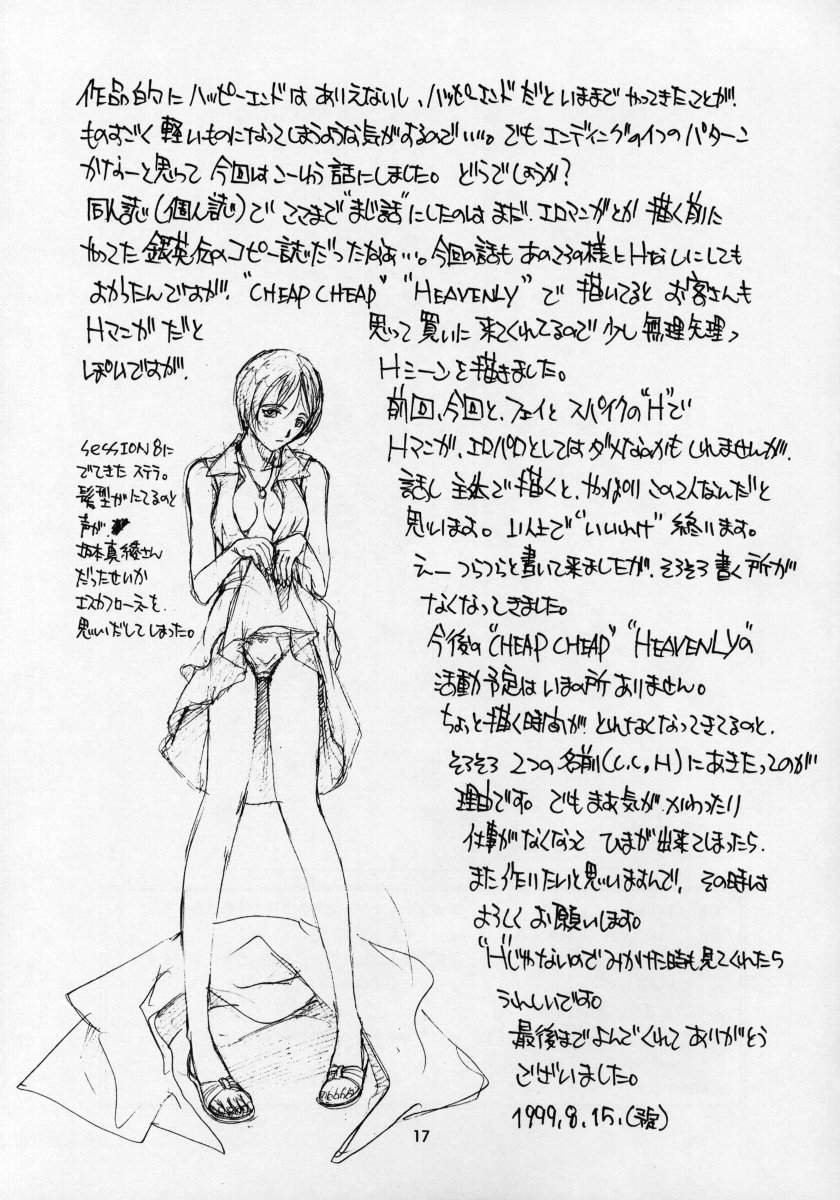 作品的にハッピーエンドはありえないし、ハッピーエンドだといままでやってきたことが、
ものすごく軽いものになってしまうような気がするので…。でもエンディングの1つのパターン
かなーと思って今回はこーいう話にしました。どうでしょうか?
同人誌(個人誌)でここまで"まじ話"にしたのはまだ、エロマンガとか描く前に
やってた銀英伝のコピー誌だったなあ…。今回の話もあのころの様にHなしにしても
よかったんですが、"CHEAP CHEAP" "HEAVENLY"で描いてるとお客さんも
Hマンガだと思って買いに来てくれてるので少し無理矢理っ
ぽいですが、Hシーンを描きました。
前回、今回と、フェイとスパイクの"H"で
Hマンガ、エロパロとしてはダメなのかもしれませんが、
話し主体で描くと、やっぱりこの2人なんだと
思います。以上で"いいわけ"終ります。
えーつらつらと書いて来ましたが、そろそろ書く所が
なくなってきました。
今後の"CHEAP CHEAP" "HEAVENLY"の
活動予定はいまの所ありません。
ちょっと描く時間がとれなくなってきてるのと、
そろそろ2つの名前(C.C,H)にあきたってのが
理由です。でもまあ気がかわったり
仕事がなくなってひまが出来てしまったら、
また作りたいと思いますんで、その時は
よろしくお願いします。
"H"じゃないのでみかけた時も見てくれたら
うれしいです。
最後までよんでくれてありがとう
ございました。
1999.8.15.
SESSION8に
でてきたステラ。
髪型がにてるのと
声が、
坂本真綾さん
だったせいか
エスカフローネを
思いだしてしまった。
17